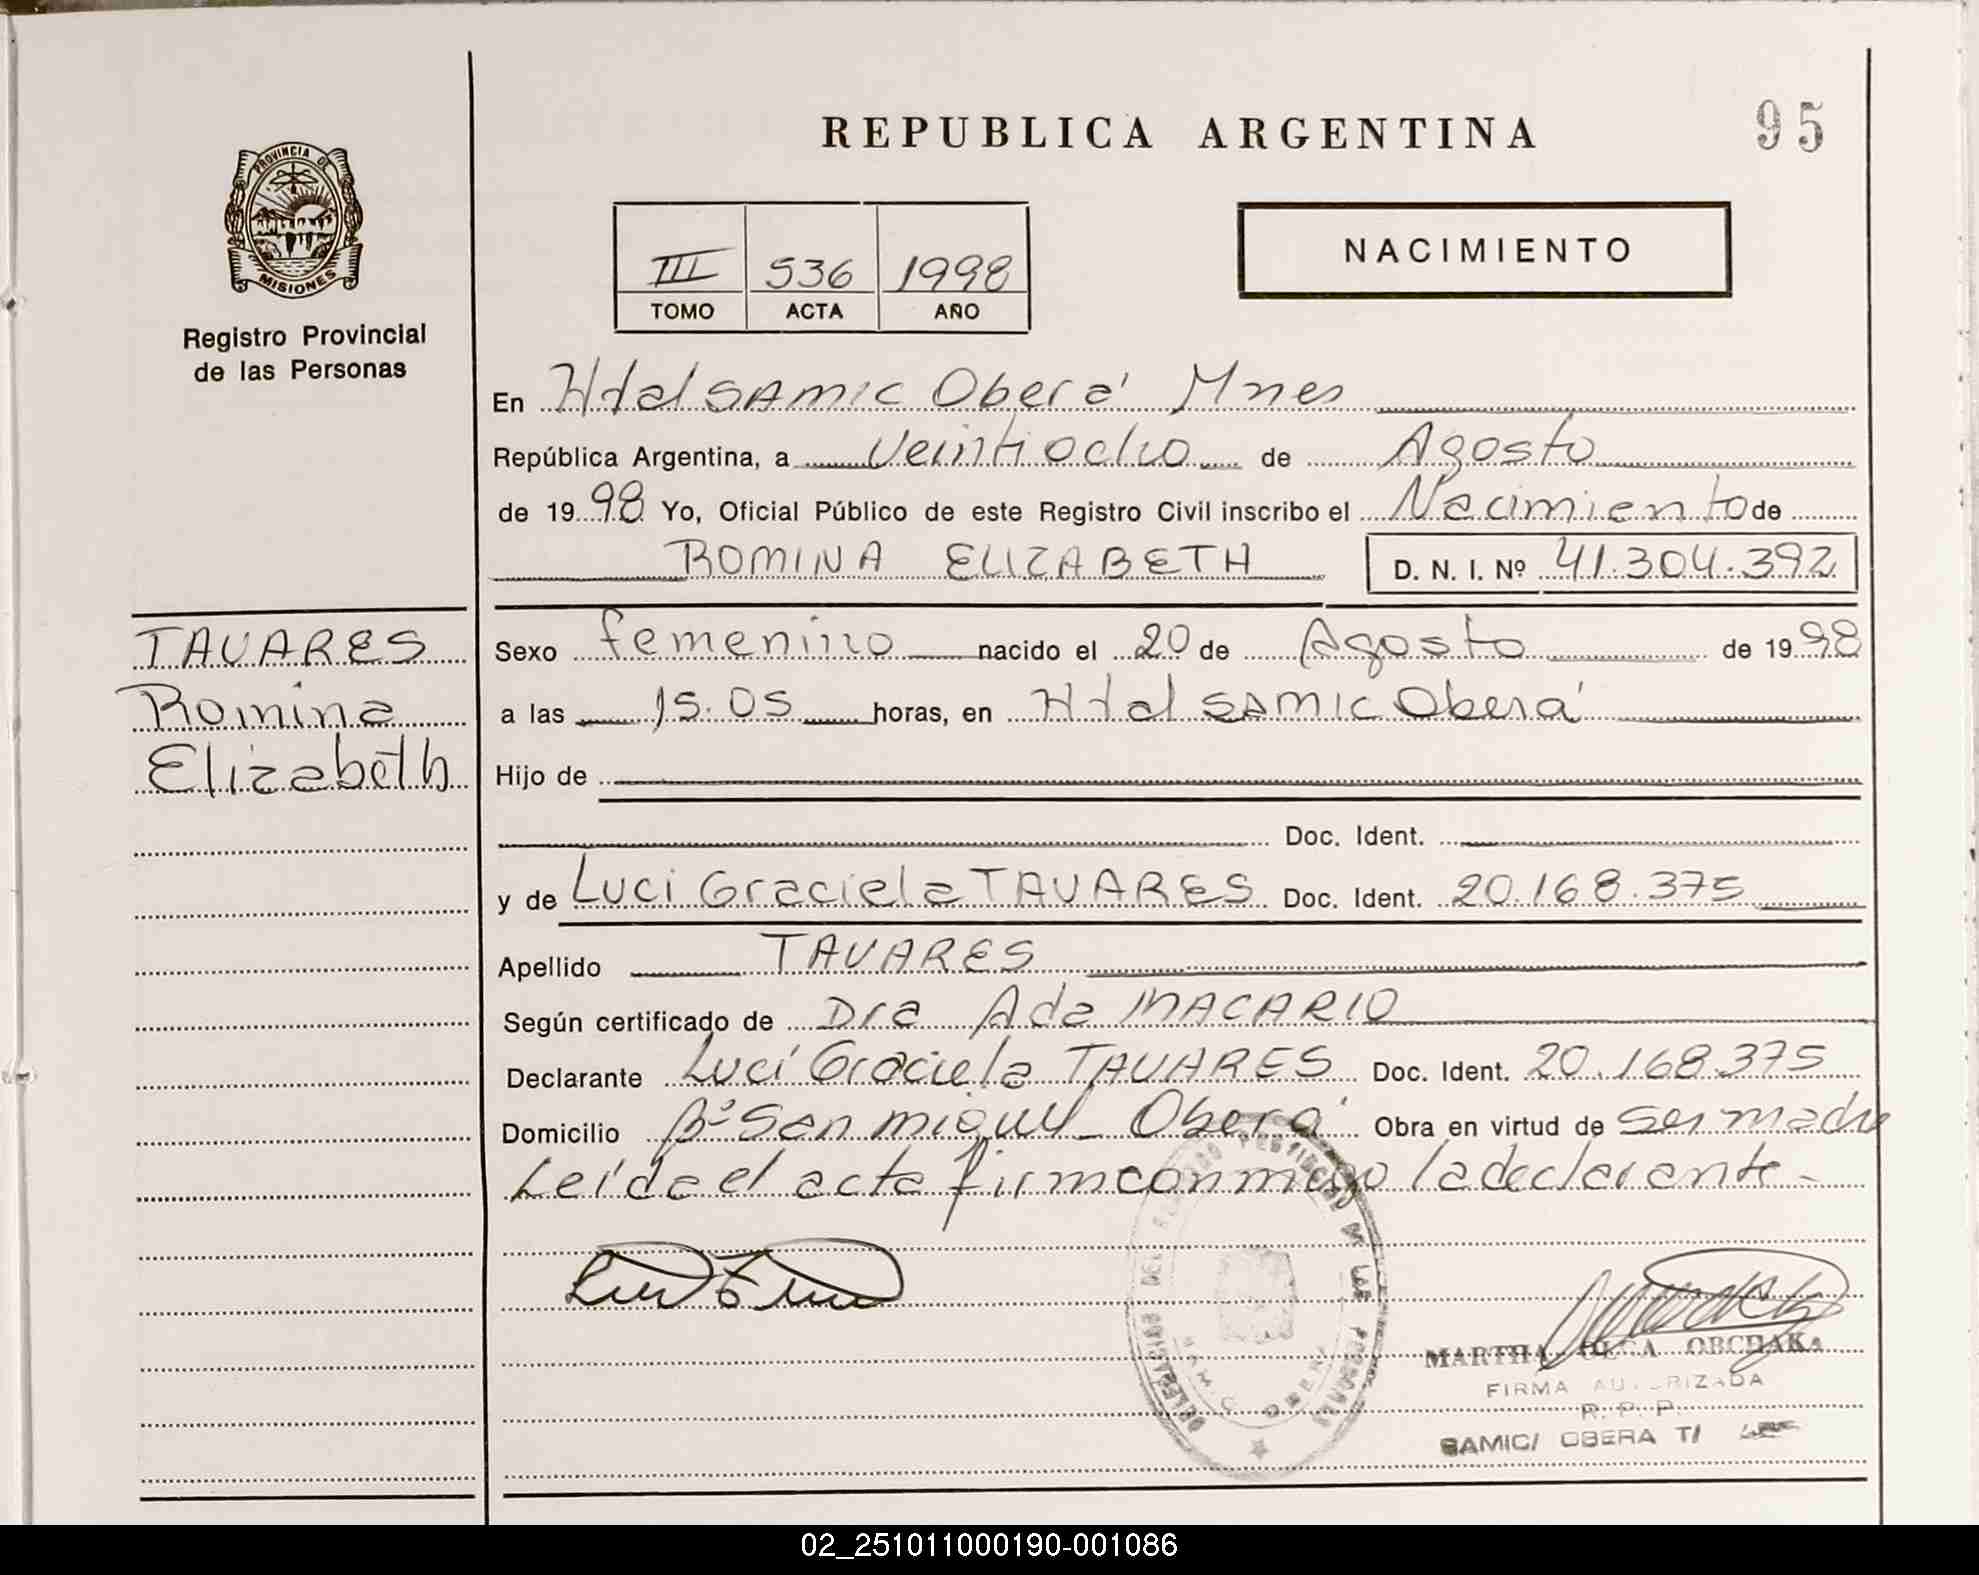 REPUBLICA ARGENTINA
95
PROVINCIA DE
MISIONES
Registro Provincial
de las Personas
III 536 1998
TOMO ACTA AÑO
NACIMIENTO
En Htal SAMIC Oberá Mnes
República Argentina, a Veintiocho de Agosto
de 1998 Yo, Oficial Público de este Registro Civil inscribo el Nacimiento de
ROMINA ELIZABETH D. N. I. Nº 41.304.392
TAVARES
Romina
Elizabeth
Sexo femenino nacido el 20 de Agosto de 1998
a las 15.05 horas, en Htal SAMIC Oberá
Hijo de
Doc. Ident.
y de Luci Graciela TAVARES Doc. Ident. 20.168.375
Apellido TAVARES
Según certificado de Dra Ada MACARIO
Declarante Luci Graciela TAVARES Doc. Ident. 20.168.375
Domicilio Bº San Miguel - Oberá Obra en virtud de ser madre
Leída el acta firma conmigo la declarante -
MARTHA OLGA OBCHAKA
FIRMA AUTORIZADA
R. P. P.
SAMIC/ OBERA T/
02_251011000190-001086